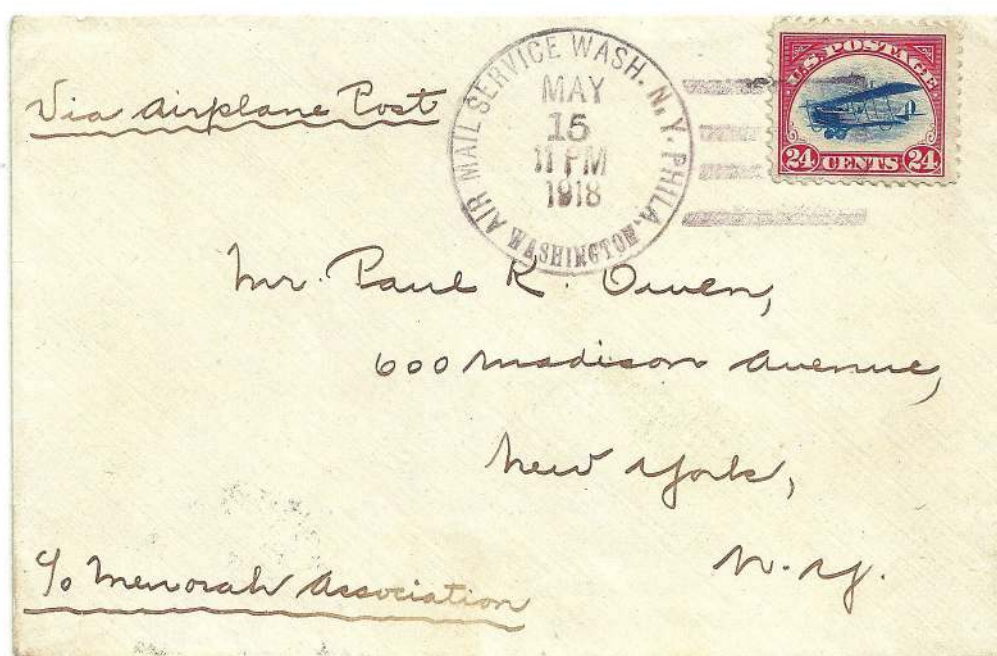 Via Airplane Post
AIR MAIL SERVICE WASH. N.Y. PHILA.
MAY
15
11 PM
1918
WASHINGTON
U.S. POSTAGE
24 CENTS 24
Mr. Paul R. Owen,
600 Madison Avenue,
New York,
N.Y.
c/o Menorah Association